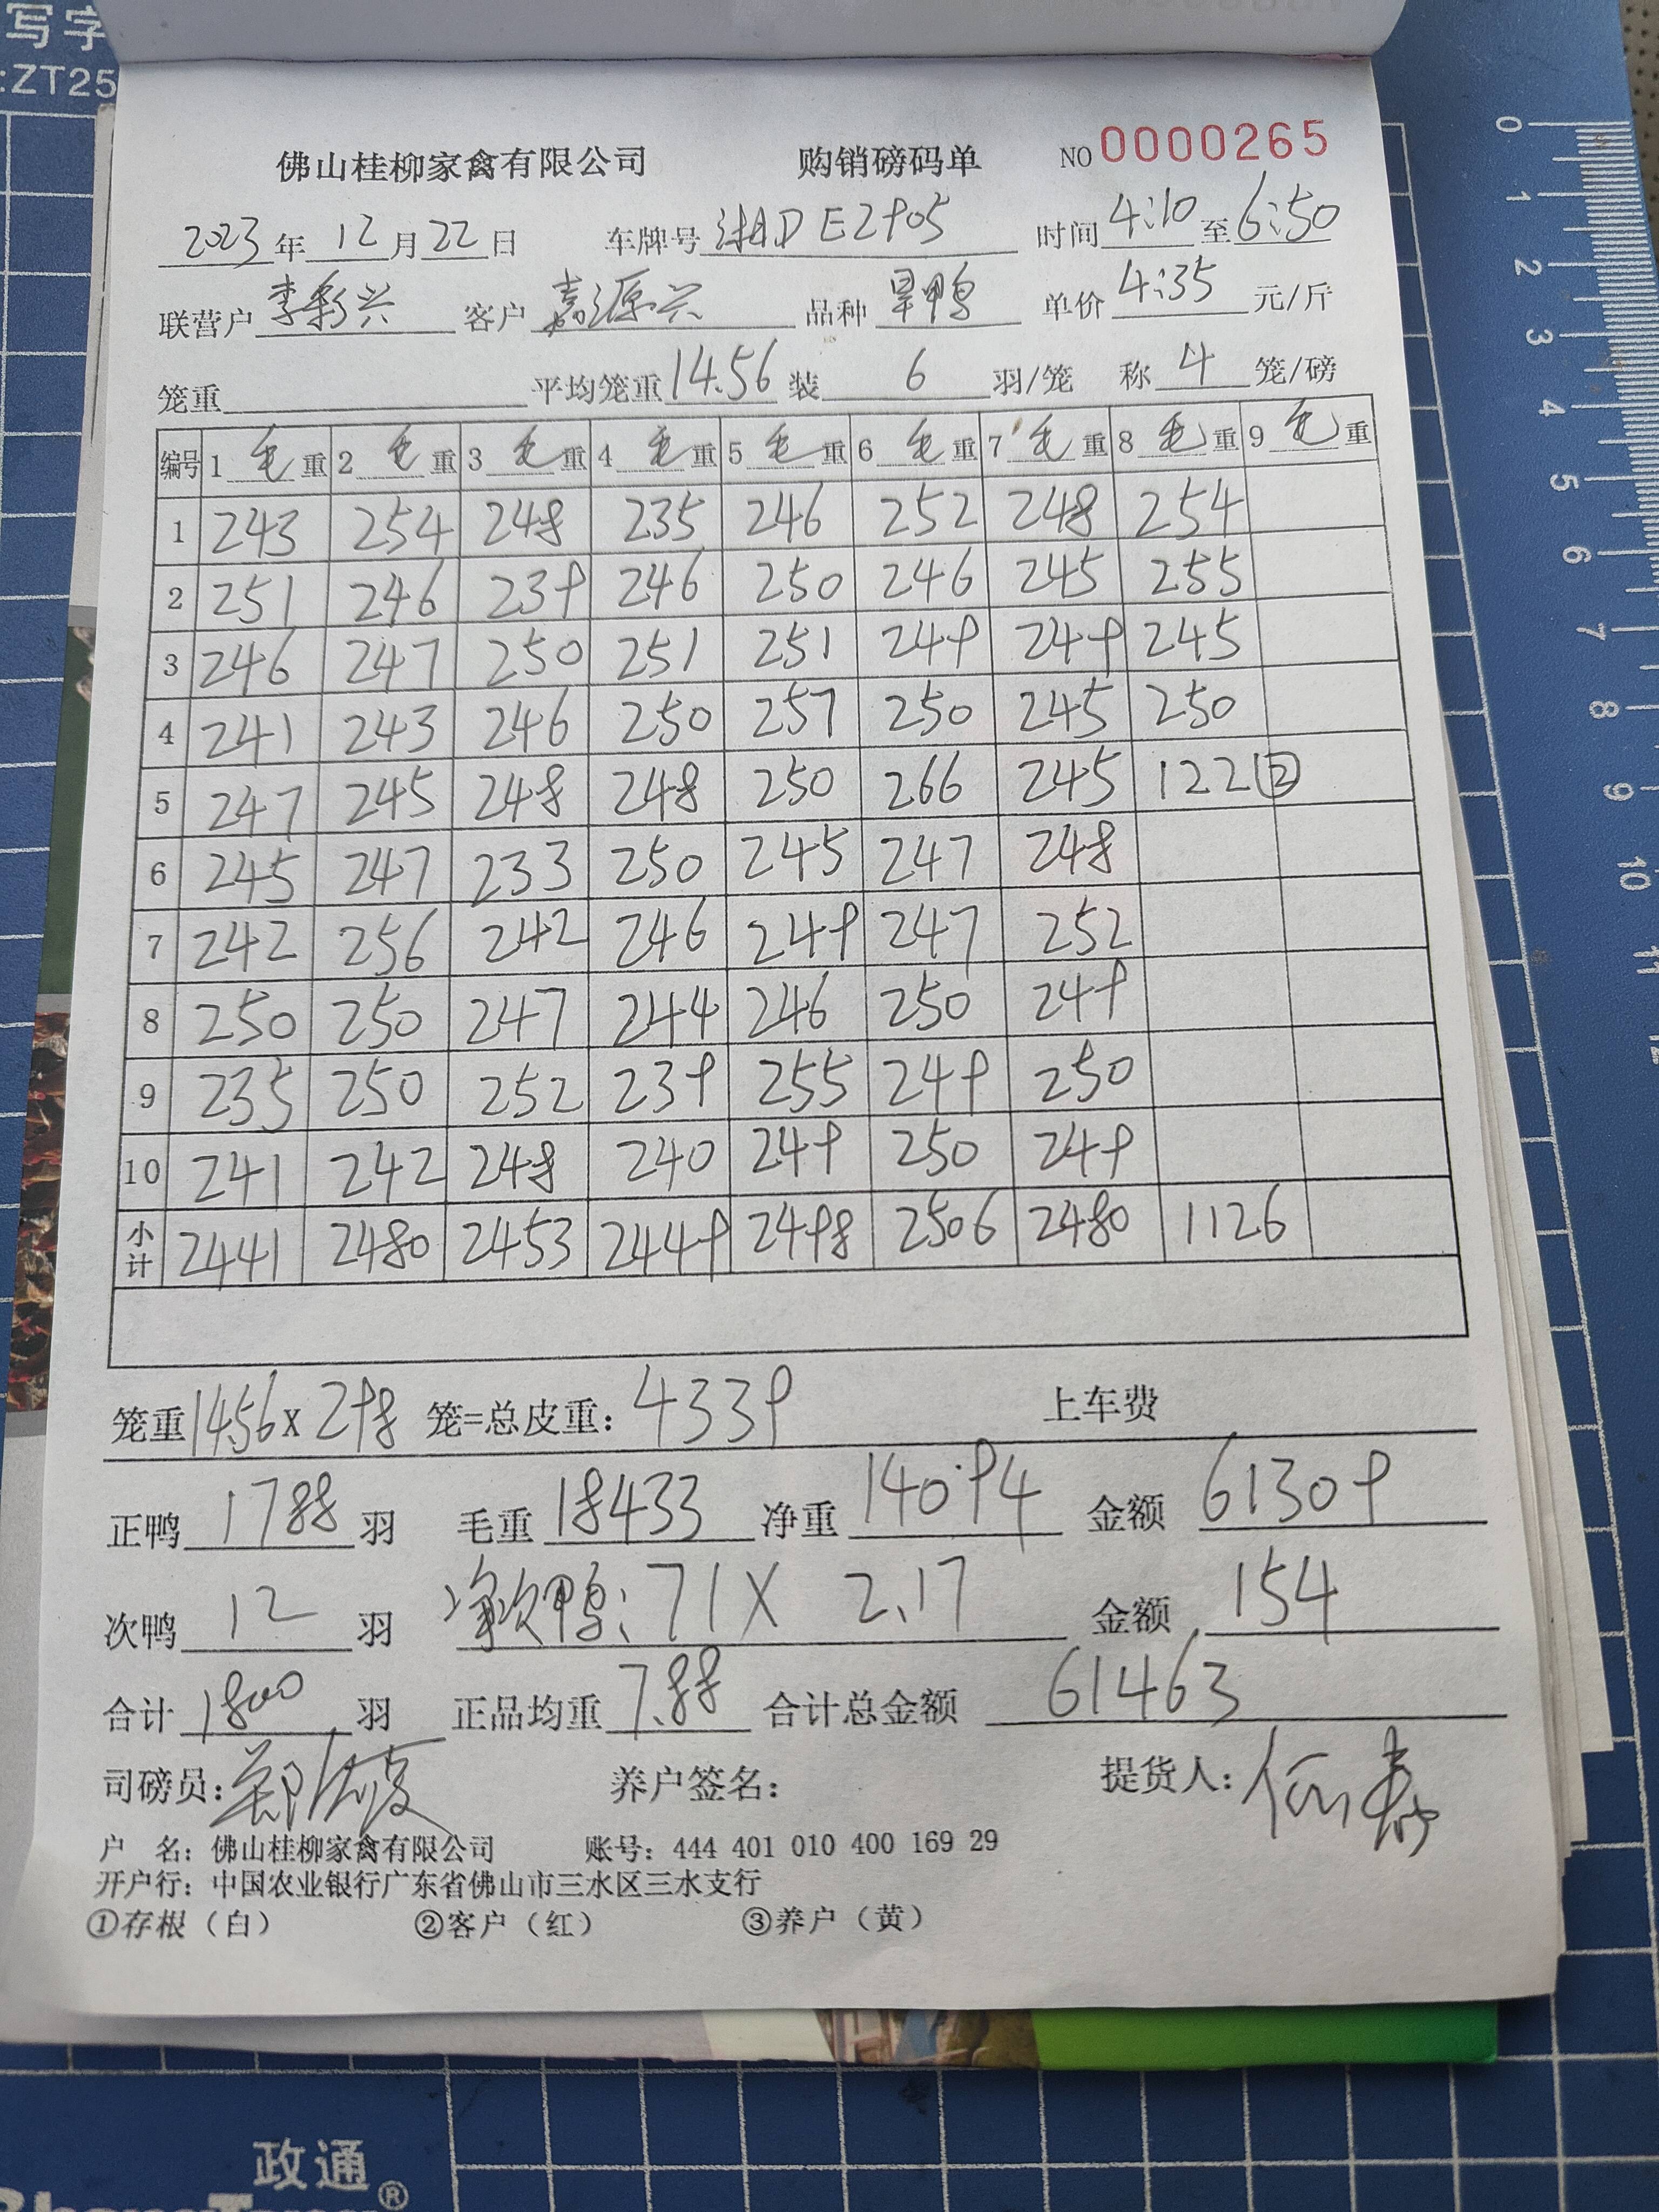 写字
:ZT25
佛山桂柳家禽有限公司 购销磅码单 NO 0000265
2023 年 12 月 22 日 车牌号 湘D E2905 时间 4:10 至 6:50
联营户 李彩兴 客户 嘉源兴 品种 旱鸭 单价 4:35 元/斤
笼重 平均笼重 14.56 装 6 羽/笼 称 4 笼/磅
编号 1 毛 重 2 毛 重 3 毛 重 4 毛 重 5 毛 重 6 毛 重 7 毛 重 8 毛 重 9 毛 重
1 243 254 248 235 246 252 248 254
2 251 246 239 246 250 246 245 255
3 246 247 250 251 251 249 249 245
4 241 243 246 250 257 250 245 250
5 247 245 248 248 250 266 245 122②
6 245 247 233 250 245 247 248
7 242 256 242 246 249 247 252
8 250 250 247 244 246 250 249
9 235 250 252 239 255 249 250
10 241 242 248 240 249 250 249
小计 2441 2480 2453 2449 2498 2506 2480 1126
笼重 14.56 x 298 笼=总皮重: 4339 上车费
正鸭 1788 羽 毛重 18433 净重 14094 金额 61309
次鸭 12 羽 净次鸭: 71 X 2.17 金额 154
合计 1800 羽 正品均重 7.88 合计总金额 61463
司磅员: 养户签名: 提货人:
户 名: 佛山桂柳家禽有限公司 账号: 444 401 010 400 169 29
开户行: 中国农业银行广东省佛山市三水区三水支行
①存根（白） ②客户（红） ③养户（黄）
0 1 2 3 4 5 6 7 8 9 10 11 12
政通®